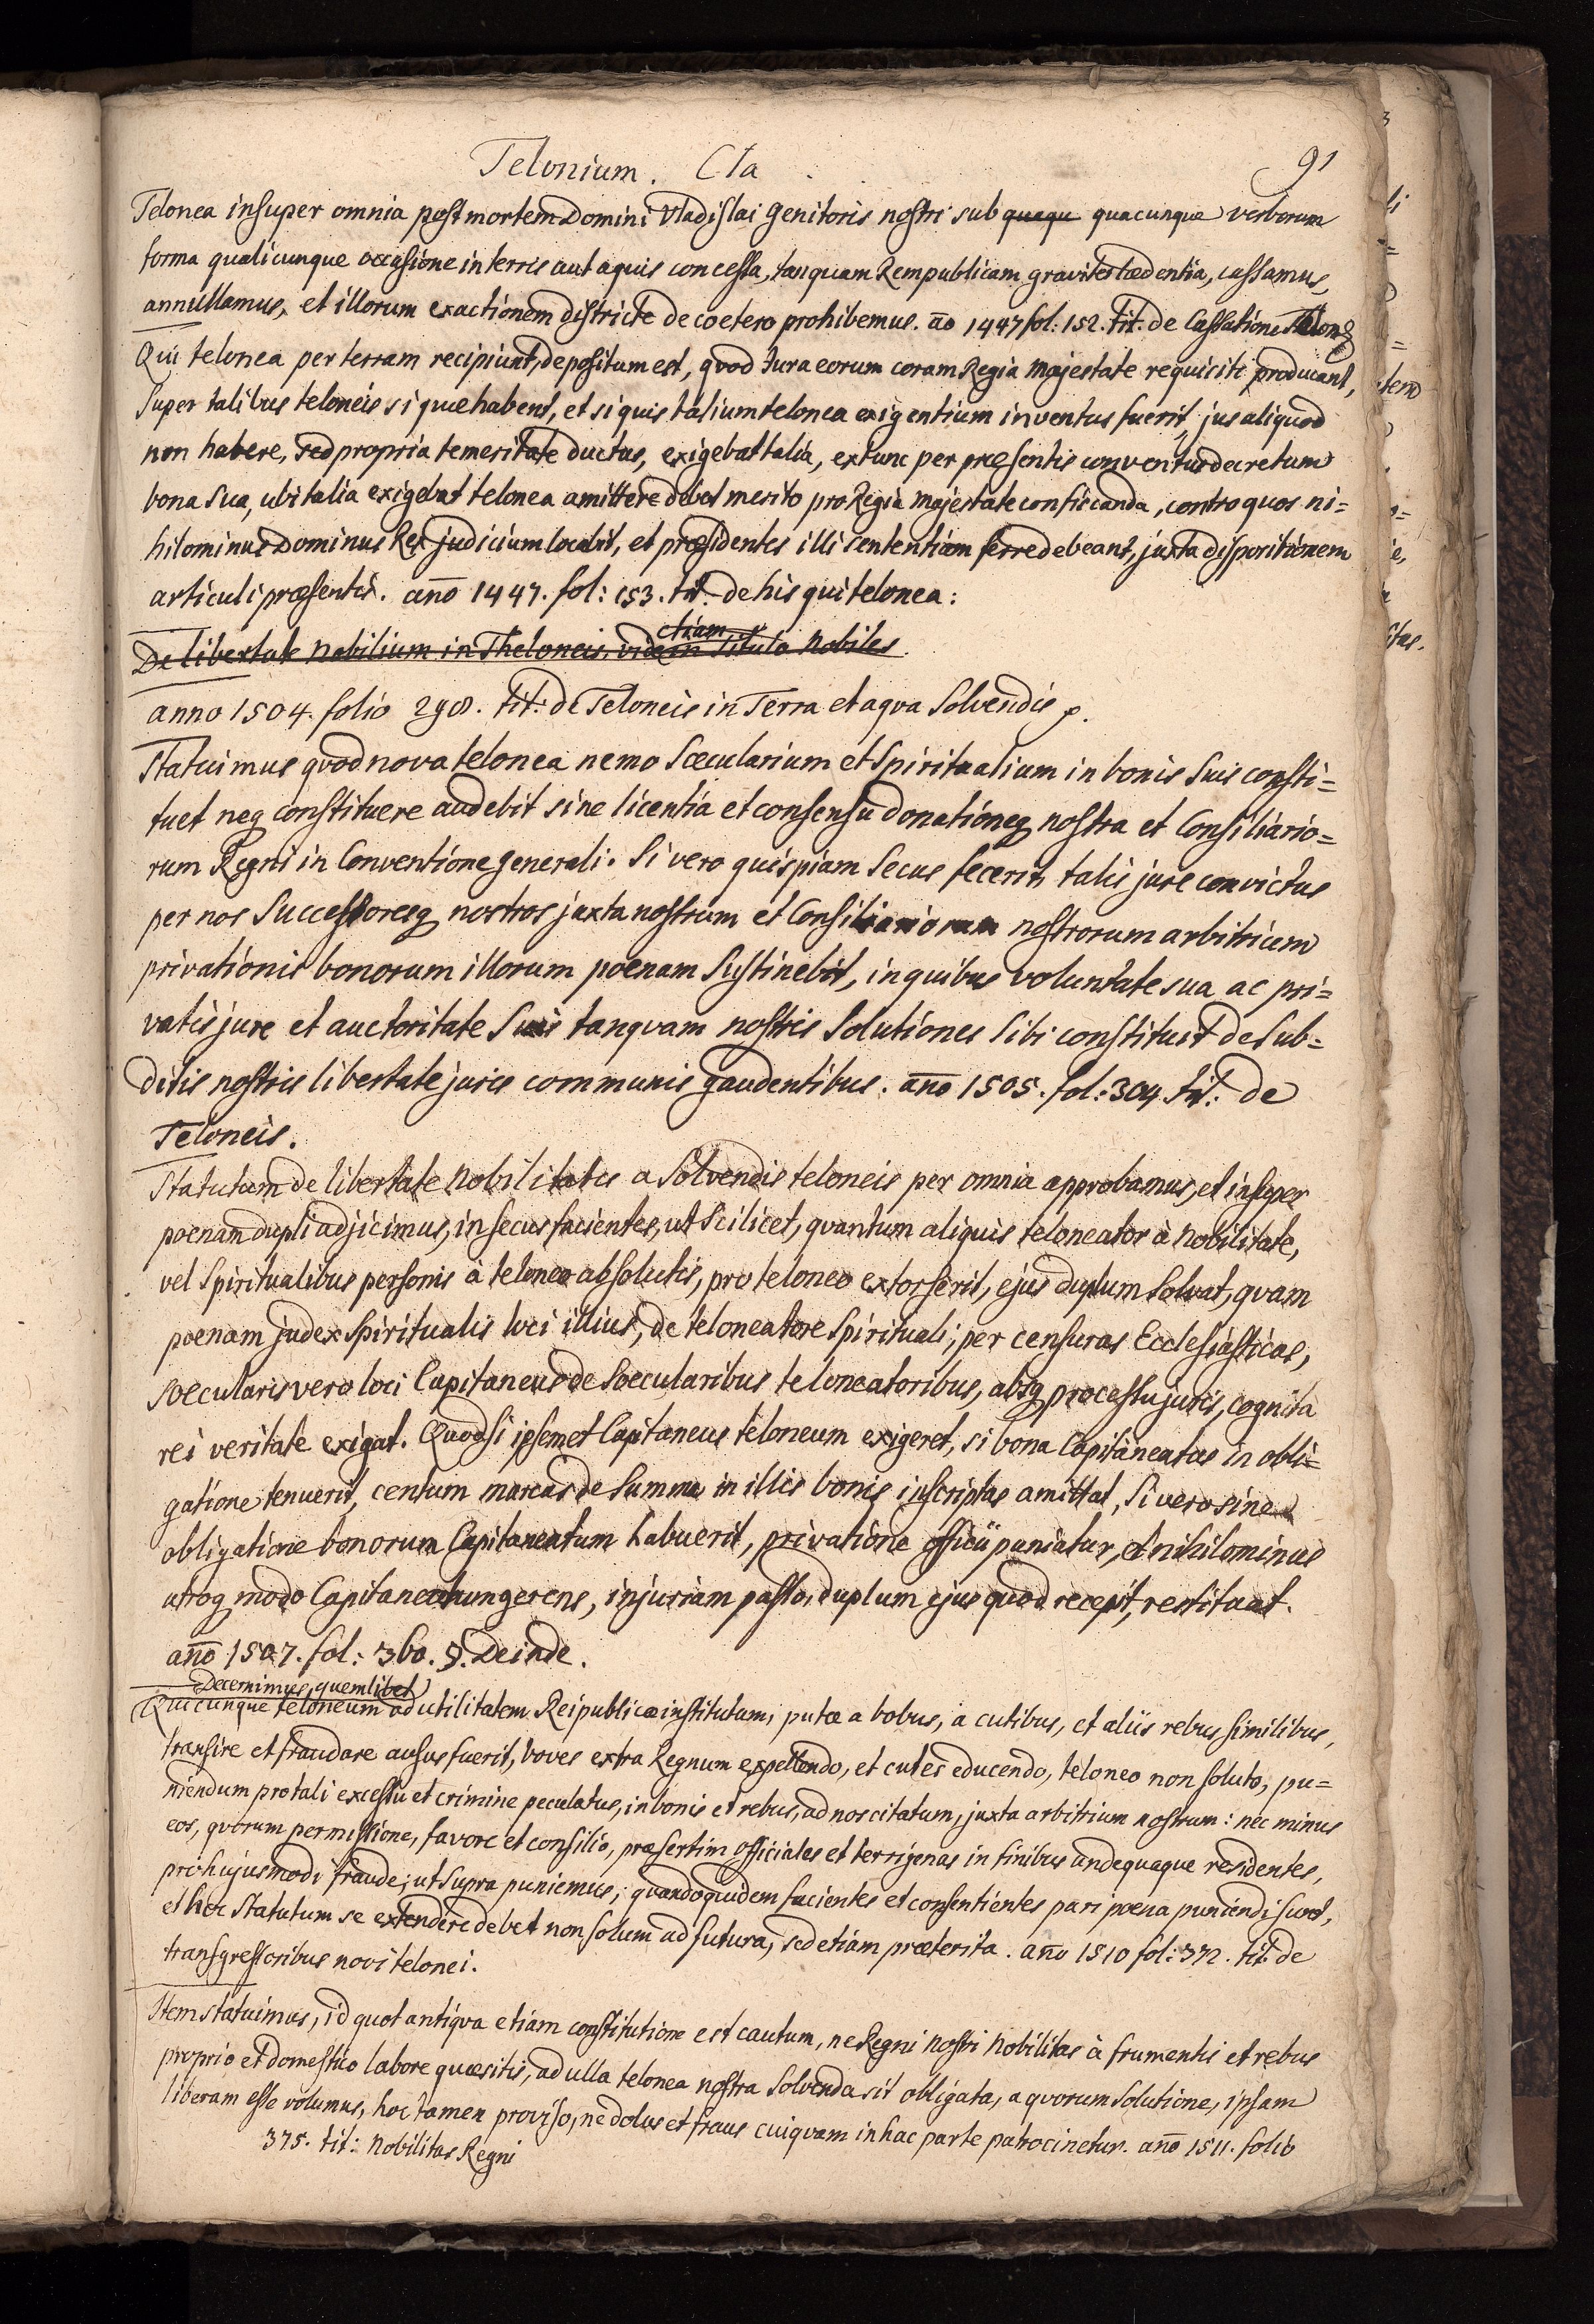 Telonium. Cła
91
Telonea insuper omnia post mortem Domini Vladislai Genitoris nostri sub quaqu quacunque verborum
forma qualicunque occasione in terris aut aquis concessa, tanquam Rempublicam graviter lædentia, cassamus,
annullamus, et illorum exactionem districte de coetero prohibemus. ao 1447 fol: 152. tit. de Cassatione
Qui telonea per terram recipiunt, depositum est, quod Iura eorum coram Regia Majestate requisiti producant,
super talibus teloneis si quæ habent, et si quis talium telonea exigentium inventus fuerit, jus aliquod
non habere, sed propria temeritate ductus, exigebat talia, extunc per præsentis conventus decretum
bona sua, ubi talia exigebat telonea amittere debet merito pro Regia Majestate confiscanda, contra quos ni=
hilominus Dominus Rex judicium locabit, et præsidentes illi sententiam ferre debeant, juxta dispositionem
articuli præsentis. año 1447. fol: 153. tit. de his qui telonea:
De libertate Nobilium in Theloneis, vide etiam in Titulo Nobiles.
anno 1504. folio 298. tit: de Teloneis in Terra et aqva Solvendis p.
Statuimus qvod nova telonea nemo Sæcularium et Spiritualium in bonis suis consti=
tuet neq constituere audebit sine licentia et consensu donationeq nostra et Consiliario=
rum Regni in Conventione generali. Si vero quispiam secus fecerit, talis jure convictus
per nos Successoresq nostros juxta nostrum et Consiliariorum nostrorum arbitrium
privationis bonorum illorum poenam sustinebit, in quibus voluntate sua ac pri=
vatis jure et auctoritate suis tanqvam nostris solutiones sibi constituit de sub=
ditis nostris libertate juris communis gaudentibus. año 1505. fol: 304 tit: de
Teloneis.
Statutum de libertate Nobilitatis a Solvendis teloneis per omnia approbamus, et insuper
poenam dupli adjicimus, in secus facientes, ut scilicet, qvantum aliquis teloneator à Nobilitate,
vel Spiritualibus personis à teloneo absolutis, pro teloneo extorserit, ejus duplum solvat, qvam
poenam judex Spiritualis loci illius, de teloneatore Spirituali, per censuras Ecclesiasticas,
Sæcularis vero loci Capitaneus de Sæcularibus teloneatoribus, absq processu juris, cognita
rei veritate exigat. Quodsi ipsemet Capitaneus teloneum exigeret, si bona Capitaneatus in obli=
gatione tenuerit, centum marcas de Summa in illis bonis inscriptas amittat, si vero sine
obligatione bonorum Capitaneatum habuerit, privatione officii puniatur, et nihilominus
utroq modo Capitaneatum gerens, injuriam passo, duplum ejus quod recepit, restituat.
año 1507. fol: 360. §. Deinde.
Decernimus, quemlibet
Quicunque teloneum ad utilitatem Reipublicæ institutum, putæ a bobus, a cutibus, et aliis rebus similibus,
transire et fraudare ausus fuerit, boves extra Regnum expellendo, et cutes educendo, teloneo non soluto, pu=
niendum pro tali excessu et crimine peculatus, in bonis et rebus, ad nos citatum, juxta arbitrium nostrum: nec minus
eos, qvorum permissione, favore et consilio, præsertim officiales et terrigenas in finibus undequaque residentes,
pro hujusmodi fraude, ut supra puniemus, quandoquidem facientes et consentientes pari poena puniendi sunt,
et hoc Statutum se extendere debet non solum ad futura, sed etiam præterita. año 1510 fol: 372. tit: de
transgressoribus novi telonei.
Item statuimus, id quot antiqva etiam constitutione est cautum, ne Regni Nostri Nobilitas à frumentis et rebus
proprio et domestico labore quæsitis, ad ulla telonea nostra solvenda sit obligata, a qvorum solutione, ipsam
liberam esse volumus, hoc tamen proviso, ne dolus et fraus cuiqvam in hac parte patrocinetur. año 1511. folio
375. tit: Nobilitas Regni